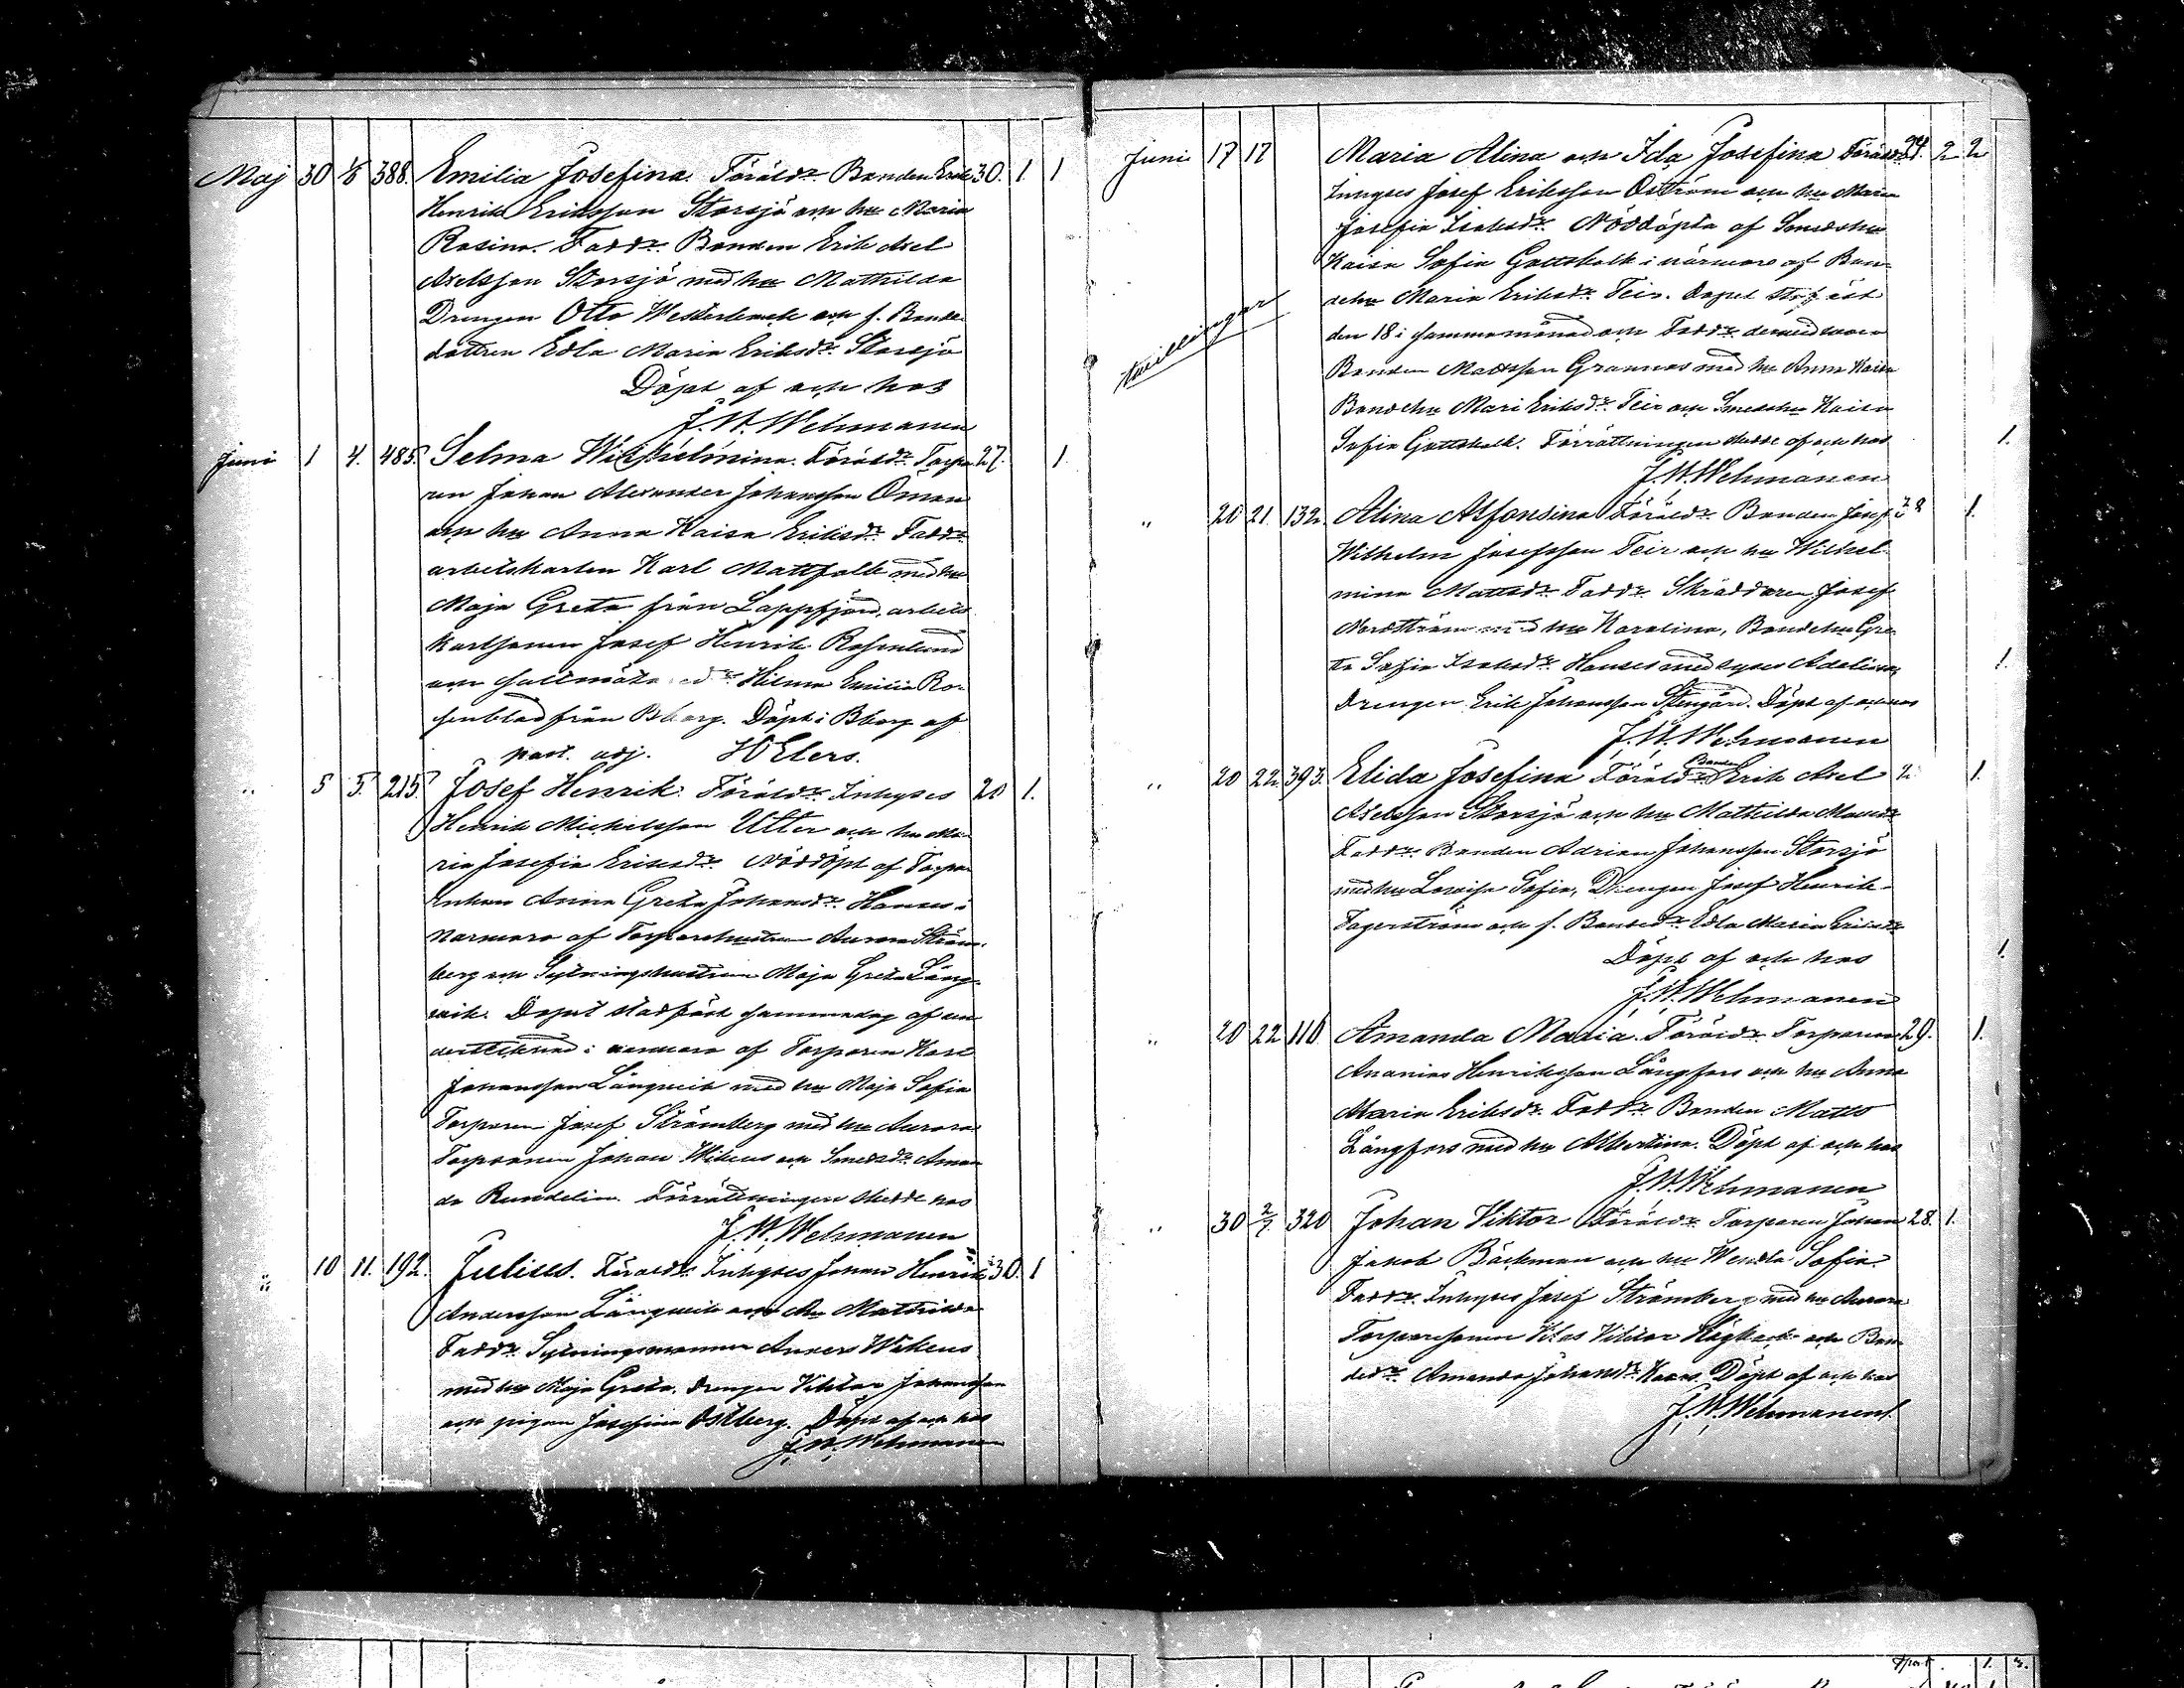 Maj 30 1/6 388. Emilia Josefina. Föräldr. Bonden Erik 30. 1. 1
Henrik Eriksson Storsjö och hu Maria
Rosina. Faddr. Bonden Erik Axel
Axelsson Storsjö med hu Mathilda
Drengen Otto Westerback och f. Bonde
dottren Edla Maria Eriksdr. Storsjö
Döpt af och hos
J. W. Wehmanen
Juni 1 4. 485. Selma Wilhelmina. Föräldr. Torpa 27. 1.
ren Johan Alexander Johansson Öman
och hu Anna Kaisa Eriksdr. Faddr.
arbetskarlen Karl Mattfolk med hu
Maja Greta från Lappfjärd, arbets
karlsonen Josef Henrik Rosenlund
och
Hilma Emilia Ro-
senblad från Bborg. Döpt i Bborg af
past. adj. H Elers.
" 5 5. 215. Josef Henrik. Föräldr. Inhyses 20 1.
Henrik Michelsson Ulter och hu Ma-
ria Josefia Eriksdr. Nöddöpt af Torpar
enkan Anna Greta Johansdr. Hannus i
närvaro af Torparehustrun Aurora Ström-
berg och Sytningshustrun Maja Greta Lång-
vik. Dopet stadfäst samma dag af un
dertecknad i närvaro af Torparen Karl
Johansson Långvik med hu Maja Sofia
Torparen Josef Strömberg med hu Aurora
Torparen Johan Wikeus och Smedsdr. Aman
da Rundelin. Förrättningen skedde hos
J. W. Wehmanen
" 10 11. 192. Julius. Föräldr. Inhyses Johan Henrik 30. 1
Andersson Långvik och hu Mathilda
Faddr. Sytningsmannen Anders Wikeus
med hu Maja Greta, drengen Viktor Johansson
och pigan Josefina Östberg. Döpt af och hos
J. W. Wehmanen
Juni 17 17 Maria Alina och Ida Josefina Föräldr. 24. 2 2
Inhyses Josef Eriksson Öström och hu Maria
Josefia Isaksdr. Nöddöpta af Smedshu
Kaisa Sofia Gottskalk i närvaro af Bon-
dehu Maria Eriksdr. Teir. Dopet stadfäst
den 18 i samma månad och Faddr. dervid voro
Tvillingar
Bonden Mattsson Grannas med hu Anna Kaisa
Bondehu Mari Eriksdr. Teir och Smedshu Kaisa
Sofia Gottskalk. Förrättningen skedde af och hos 1.
J. W. Wehmanen
" 20 21. 132. Alina Alfonsina Föräldr. Bonden Josef 38 1.
Wilhelm Josefsson Teir och hu Wilhel-
mina Mattsdr. Faddr. Skräddaren Josef
Nordström med hu Karolina, Bondehu Gre-
ta Sofia Isaksdr. Hannus med syster Adelina, 1.
Drengen Erik Johansson Stengård. Döpt af och hos
J. W. Wehmanen
" 20 22. 393. Elida Josefina Föräldr. Bonden Erik Axel 2 1.
Axelsson Storsjö och hu Mathilda Matsdr.
Faddr. Bonden Adrian Johansson Storsjö
med hu Lovisa Sofia, Drengen Josef Henrik
Fagerström och f. Bondedr. Edla Maria Eriksdr.
Döpt af och hos 1.
J. W. Wehmanen
" 20 22 110 Amanda Maria. Föräldr. Torparen 29. 1.
Ananias Henriksson Långfors och hu Anna
Maria Eriksdr. Faddr. Bonden Matts
Långfors med hu Albertina. Döpt af och hos
J. W. Wehmanen
" 30 2/7 320 Johan Viktor Föräldr. Torparen Johan 28. 1.
Jakob Bäckman och hu Wendla Sofia.
Faddr. Inhyses Josef Strömberg med hu Aurora
Torparesonen Klas Viktor Högback och Bon-
dedr. Amanda Johansdr. Hanns. Döpt af och hos
J. W. Wehmanen.